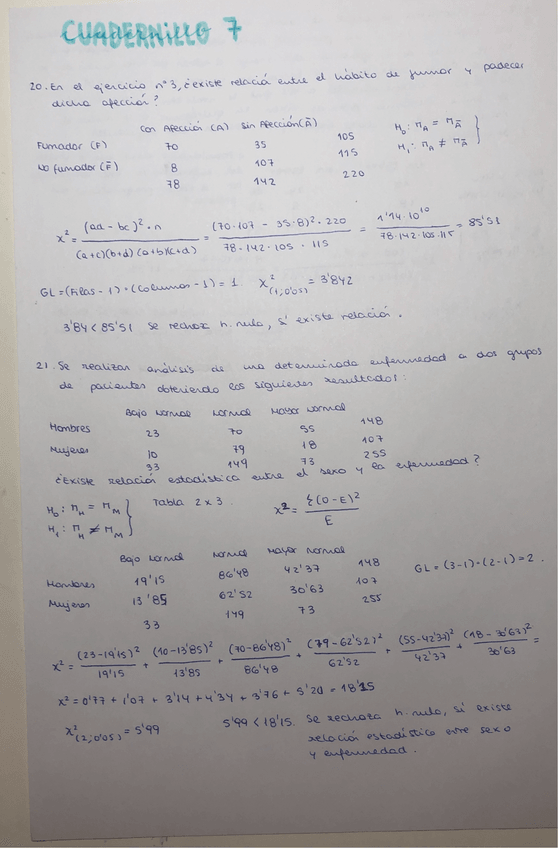 CUADERNILLO 7
20. En el ejercicio nº3, ¿existe relación entre el hábito de fumar y padecer
dicha afección?
Con Afección (A) Sin Afección (Ā)
Fumador (F) 70 35 105 H₀: π_A = π_Ā
No fumador (F̄) 8 107 115 H₁: π_A ≠ π_Ā
78 142 220
x² = (ad - bc)² · n / (a+c)(b+d)(a+b)(c+d) = (70·107 - 35·8)² · 220 / 78·142·105·115 = 1'14·10¹⁰ / 78·142·105·115 = 85'51
GL = (Filas - 1) · (Columnas - 1) = 1 X²(1; 0'05) = 3'842
3'84 < 85'51 Se rechaza h. nula, sí existe relación.
21. Se realizan análisis de una determinada enfermedad a dos grupos
de pacientes obteniendo los siguientes resultados:
Bajo normal Normal Mayor normal
Hombres 23 70 55 148
Mujeres 10 79 18 107
33 149 73 255
¿Existe relación estadística entre el sexo y la enfermedad?
H₀: π_H = π_M Tabla 2x3 x² = Σ(O-E)² / E
H₁: π_H ≠ π_M
Bajo normal Normal Mayor normal
Hombres 19'15 86'48 42'37 148 GL = (3-1)·(2-1) = 2.
Mujeres 13'85 62'52 30'63 107
33 149 73 255
x² = (23-19'15)² / 19'15 + (10-13'85)² / 13'85 + (70-86'48)² / 86'48 + (79-62'52)² / 62'52 + (55-42'37)² / 42'37 + (18-30'63)² / 30'63 =
x² = 0'77 + 1'07 + 3'14 + 4'34 + 3'76 + 5'20 = 18'15
X²(2; 0'05) = 5'99 5'99 < 18'15. Se rechaza h. nula, sí existe
relación estadística entre sexo
y enfermedad.